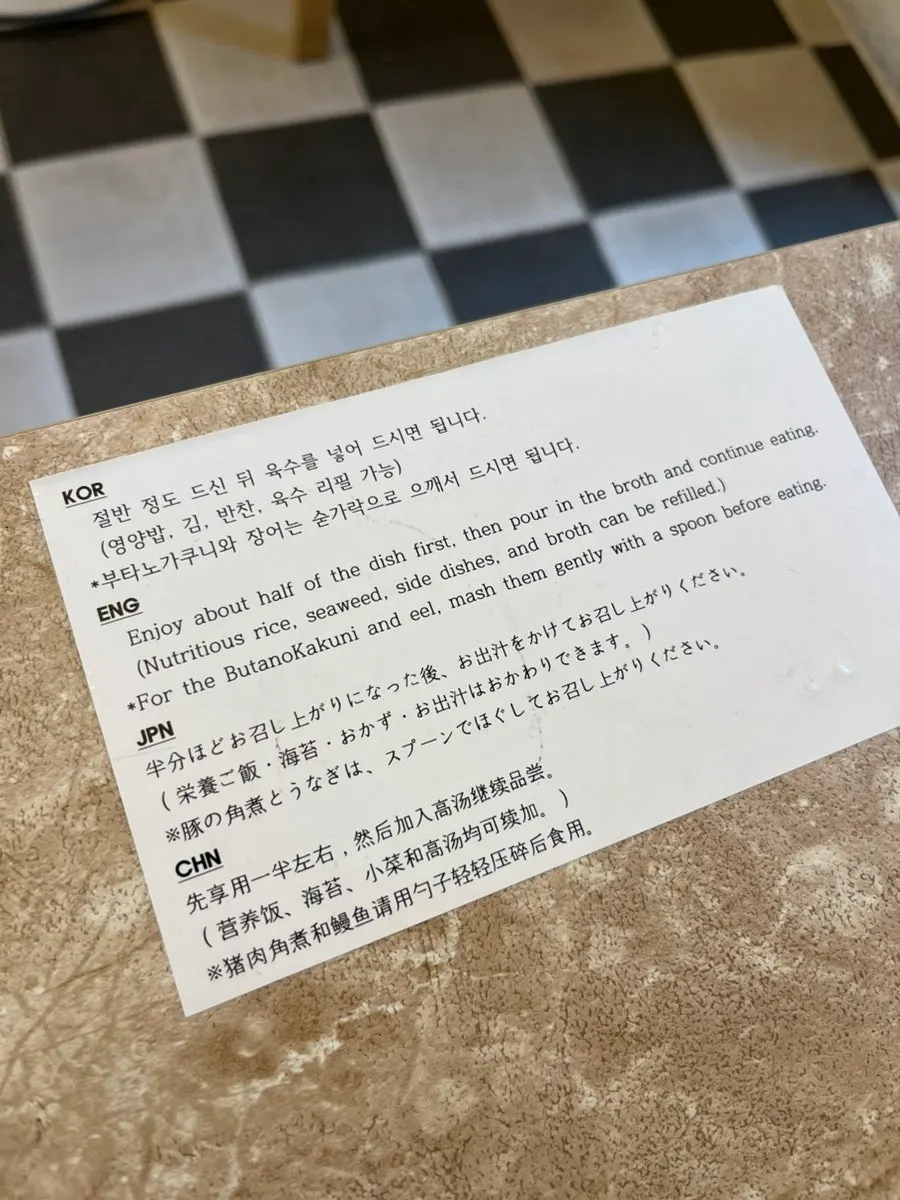 KOR
절반 정도 드신 뒤 육수를 넣어 드시면 됩니다.
(영양밥, 김, 반찬, 육수 리필 가능)
*부타노가쿠니와 장어는 숟가락으로 으깨서 드시면 됩니다.
ENG
Enjoy about half of the dish first, then pour in the broth and continue eating.
(Nutritious rice, seaweed, side dishes, and broth can be refilled.)
*For the ButanoKakuni and eel, mash them gently with a spoon before eating.
JPN
半分ほどお召し上がりになった後、お出汁をかけてお召し上がりください。
(栄養ご飯・海苔・おかず・お出汁はおかわりできます。)
※豚の角煮とうなぎは、スプーンでほぐしてお召し上がりください。
CHN
先享用一半左右,然后加入高汤继续品尝。
(营养饭、海苔、小菜和高汤均可续加。)
※猪肉角煮和鳗鱼请用勺子轻轻压碎后食用。